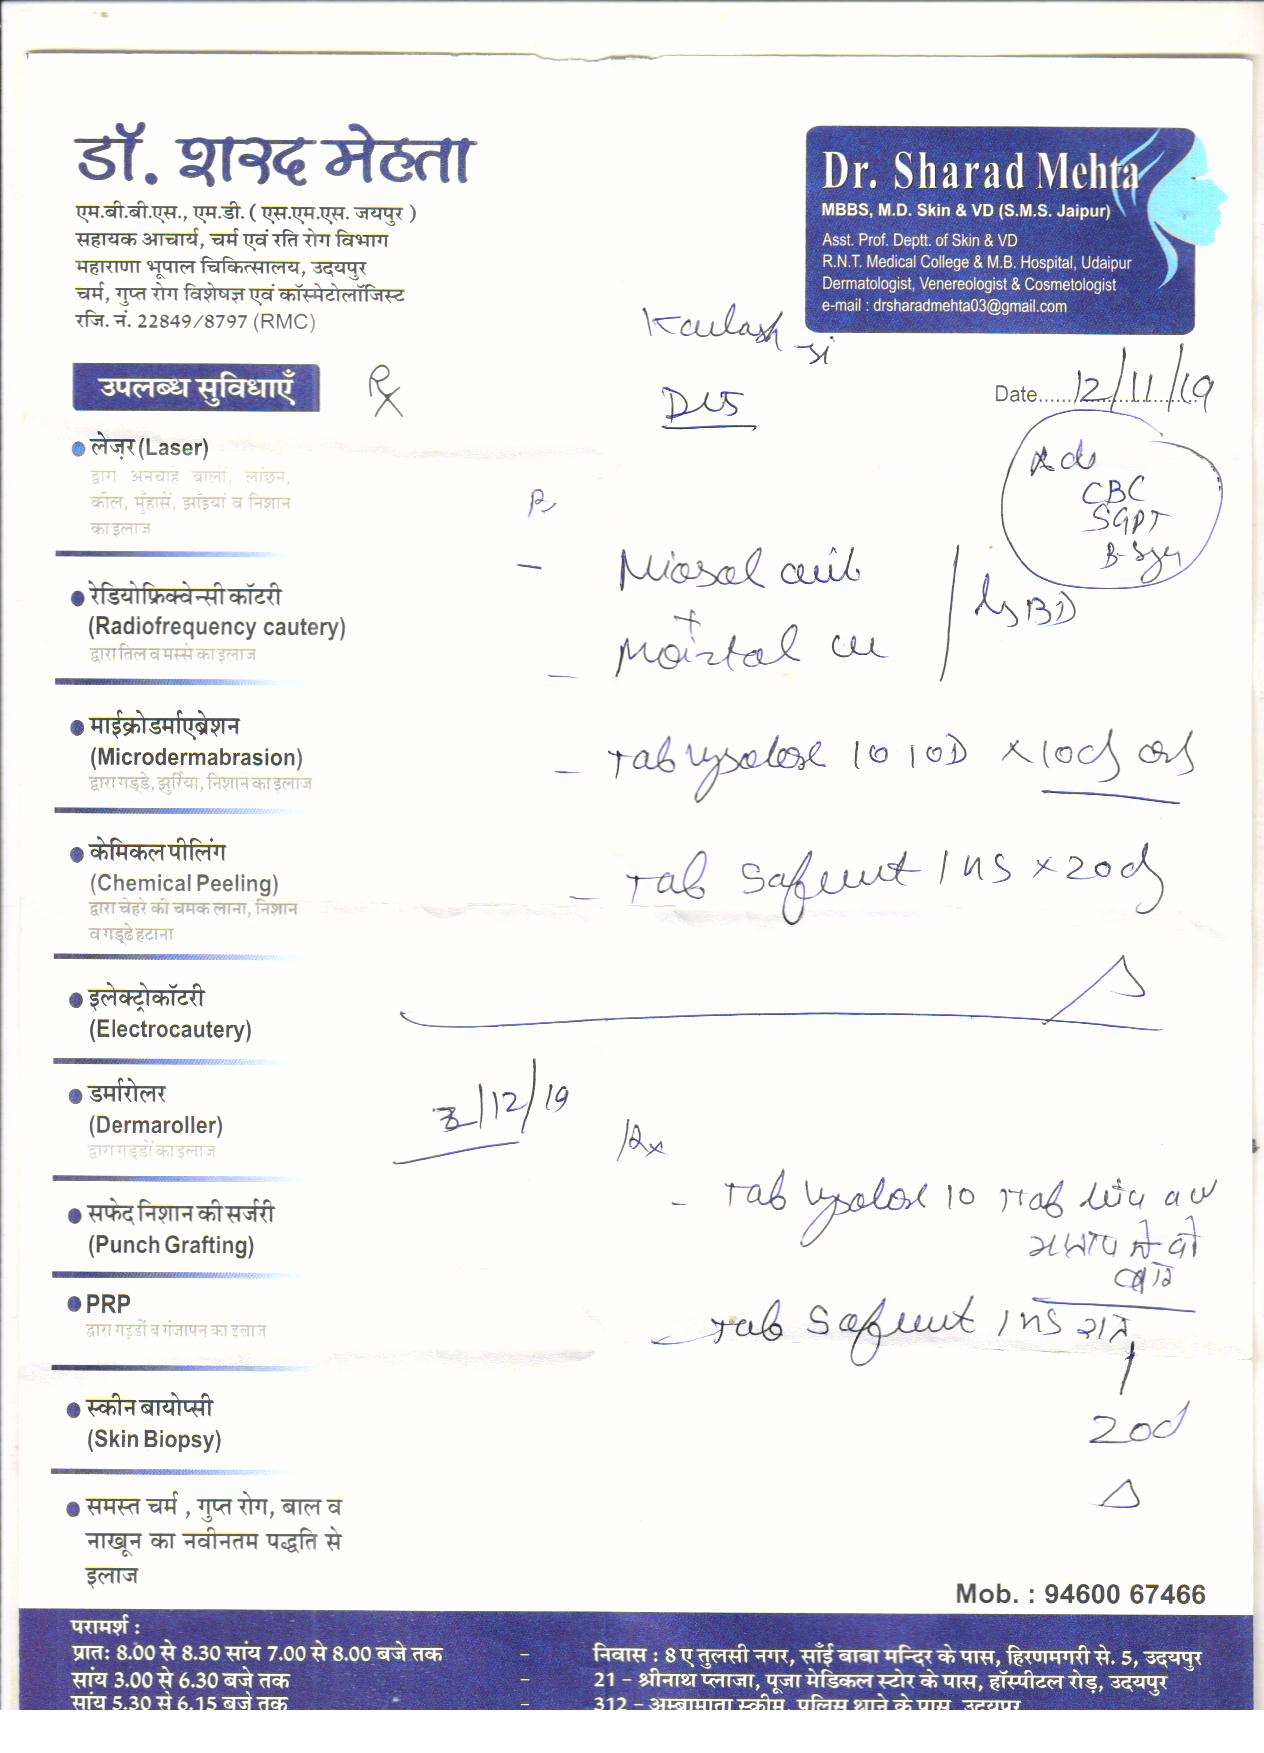 डॉ. शरद मेहता
एम.बी.बी.एस., एम.डी. ( एस.एम.एस. जयपुर )
सहायक आचार्य, चर्म एवं रति रोग विभाग
महाराणा भूपाल चिकित्सालय, उदयपुर
चर्म, गुप्त रोग विशेषज्ञ एवं कॉस्मेटोलॉजिस्ट
रजि. नं. 22849/8797 (RMC)
Dr. Sharad Mehta
MBBS, M.D. Skin & VD (S.M.S. Jaipur)
Asst. Prof. Deptt. of Skin & VD
R.N.T. Medical College & M.B. Hospital, Udaipur
Dermatologist, Venereologist & Cosmetologist
e-mail : drsharadmehta03@gmail.com
Kailash
Date......12/11/19
उपलब्ध सुविधाएँ
Rx
CBC
SGPT
लेज़र (Laser)
द्वारा अनचाहे बालों, लांछन,
कील, मुँहासें, झाँइयां व निशान
का इलाज
रेडियोफ्रिक्वेन्सी कॉटरी
(Radiofrequency cautery)
द्वारा तिल व मस्से का इलाज
माईक्रोडर्माएब्रेशन
(Microdermabrasion)
द्वारा गड्डे, झुर्रिया, निशान का इलाज
केमिकल पीलिंग
(Chemical Peeling)
द्वारा चेहरे की चमक लाना, निशान
व गड्ढे हटाना
इलेक्ट्रोकॉटरी
(Electrocautery)
डर्मारोलर
(Dermaroller)
द्वारा गड्डों का इलाज
सफेद निशान की सर्जरी
(Punch Grafting)
PRP
द्वारा गड्डों व गंजापन का इलाज
स्कीन बायोप्सी
(Skin Biopsy)
समस्त चर्म , गुप्त रोग, बाल व
नाखून का नवीनतम पद्धति से
इलाज
+
BD
- Tab 10 10D × 10d
- Tab 1 HS × 20d
3/12/19
Rx
- Tab 10 1Tab
Tab 1 HS
20d
Mob. : 94600 67466
परामर्श :
प्रातः 8.00 से 8.30 सांय 7.00 से 8.00 बजे तक - निवास : 8 ए तुलसी नगर, साँई बाबा मन्दिर के पास, हिरणमगरी से. 5, उदयपुर
सांय 3.00 से 6.30 बजे तक - 21 – श्रीनाथ प्लाजा, पूजा मेडिकल स्टोर के पास, हॉस्पीटल रोड़, उदयपुर
सांय 5.30 से 6.15 बजे तक - 312 – अम्बामाता स्कीम, पुलिस थाने के पास, उदयपुर